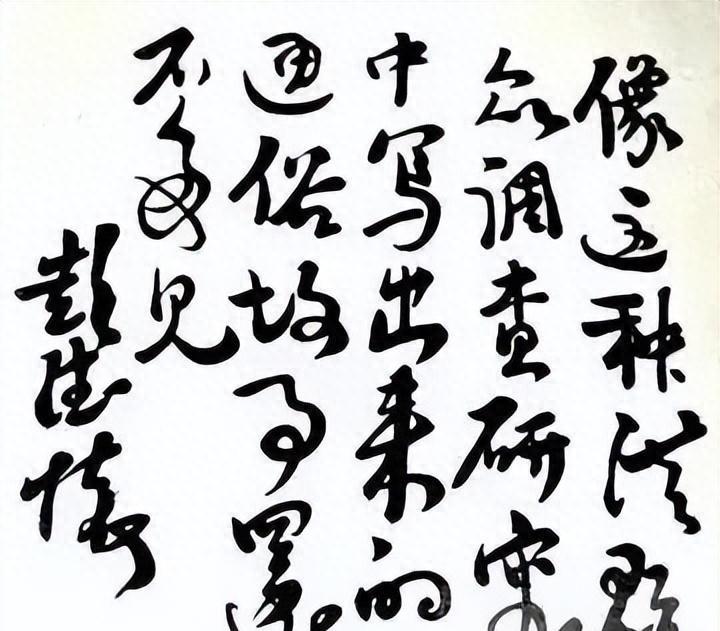 像这种从群
众调查研究
中写出来的
通俗故事還
不多见
彭德怀